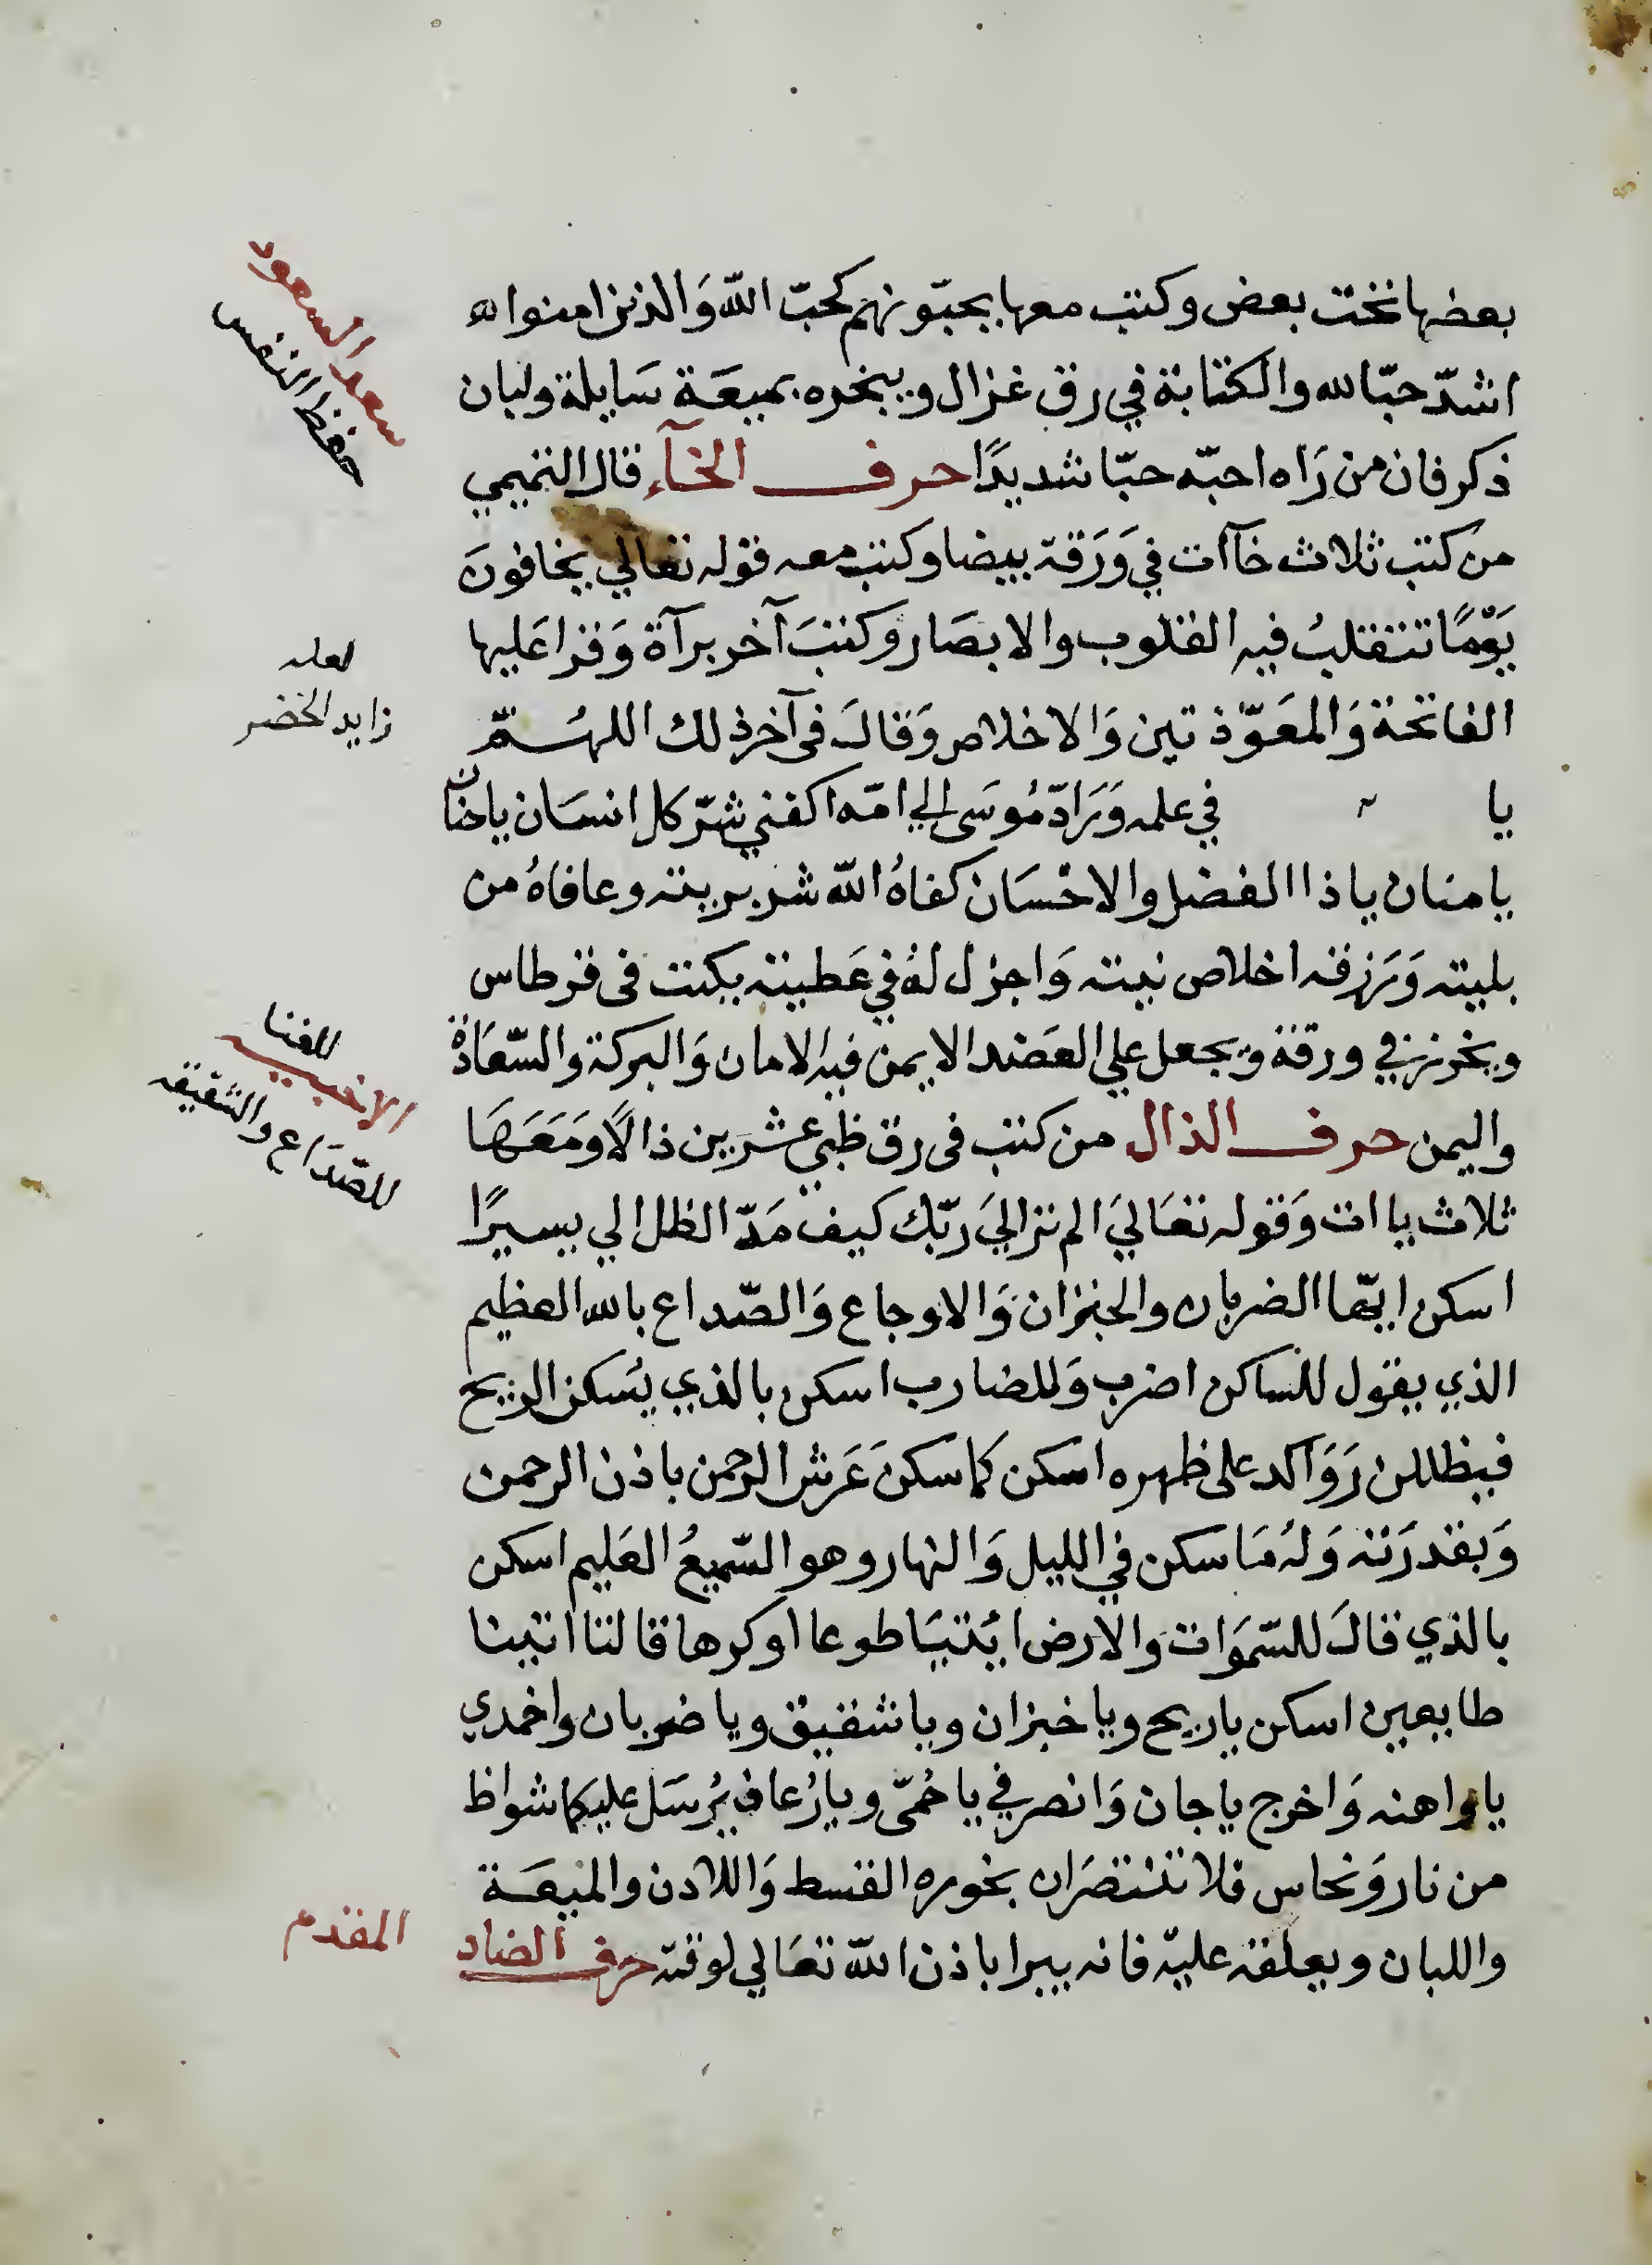 بعضها تحت بعض وكتب معها يحبّونهم كحبّ اللّه وَالذين امنوا لله
اشدّ حبّا لله والكتابة في رق غزال ويبخره بميعَة سَايلة ولبان
ذكر فان من رَاه احبّه حبّا شديدًا حرف الخآء قال التميمي
من كتب ثلاث خاآت في وَرَقة بيضا وكتب معه قوله تعالي يخافونَ
يَوْمًا تتقلبُ فيه القلوب والابصَار وكتبَ آخر برآة وَقرا عَليها
الفاتحة وَالمعَوّذتين وَالاخلاص وَقالَ فى آخر ذلك اللهُـــمّ
يا في علمه وَرَادّ مُوسَى الي امّه اكفني شرّ كل انسَان ياحنان
يا منان ياذا الفضل والاحْسَان كفاهُ اللّه شر بريته وعافاهُ من
بليته وَرَزقه اخلاص نيته وَاجزل لهُ في عَطيته يكتب فى قرطاس
ويخرزفي ورقة ويجعل علي العَضد الايمن فيه الامان وَالبركة والسّعَادة
واليمن حرف الذال من كتب فى رق ظبي عشرين ذالًا وَمَعَهَا
ثلاث يا ات وَقوله تعَاليَ الم تر اليَ رَبّك كيف مَدّ الظل الي يسيرًا
اسكن ايّها الضربان والخنزان وَالاوجاع وَالصّداع بالله العظيم
الذي يقول للساكن اضرب وَللضارب اسكن بالذي يُسكن الريح
فيظللن رَوَاكد على ظهره اسكن كما سكنَ عَرش الرحمن باذن الرحمن
وَبقدرَته وَلهُ مَا سكن في الليل وَالنهار وهو السّميعُ العَليم اسكن
بالذي قالَ للسّمَوَات والارض ائتيَا طوعا اوكرها قالتا اتينا
طايعين اسكن ياريح ويا خبزان ويا شقيق ويا ضربان واخمدي
يا واهنه وَاخرج ياجان وَانصرفي يا حُمّى ويا رُعاف يُرسَل عليكما شواظ
من نار وَنحاس فلا تنتصَران بخوره القسط وَاللادن والميعَـة
واللبان ويعلقه عليّه فانه يبرا باذن اللّه تعَالي لوقته حرف الضاد
سعد السعود
حفظ النفس
لعله
زايد الخضر
للغنا
الاخبيه
للصّدَاع والشقيقه
المقدم